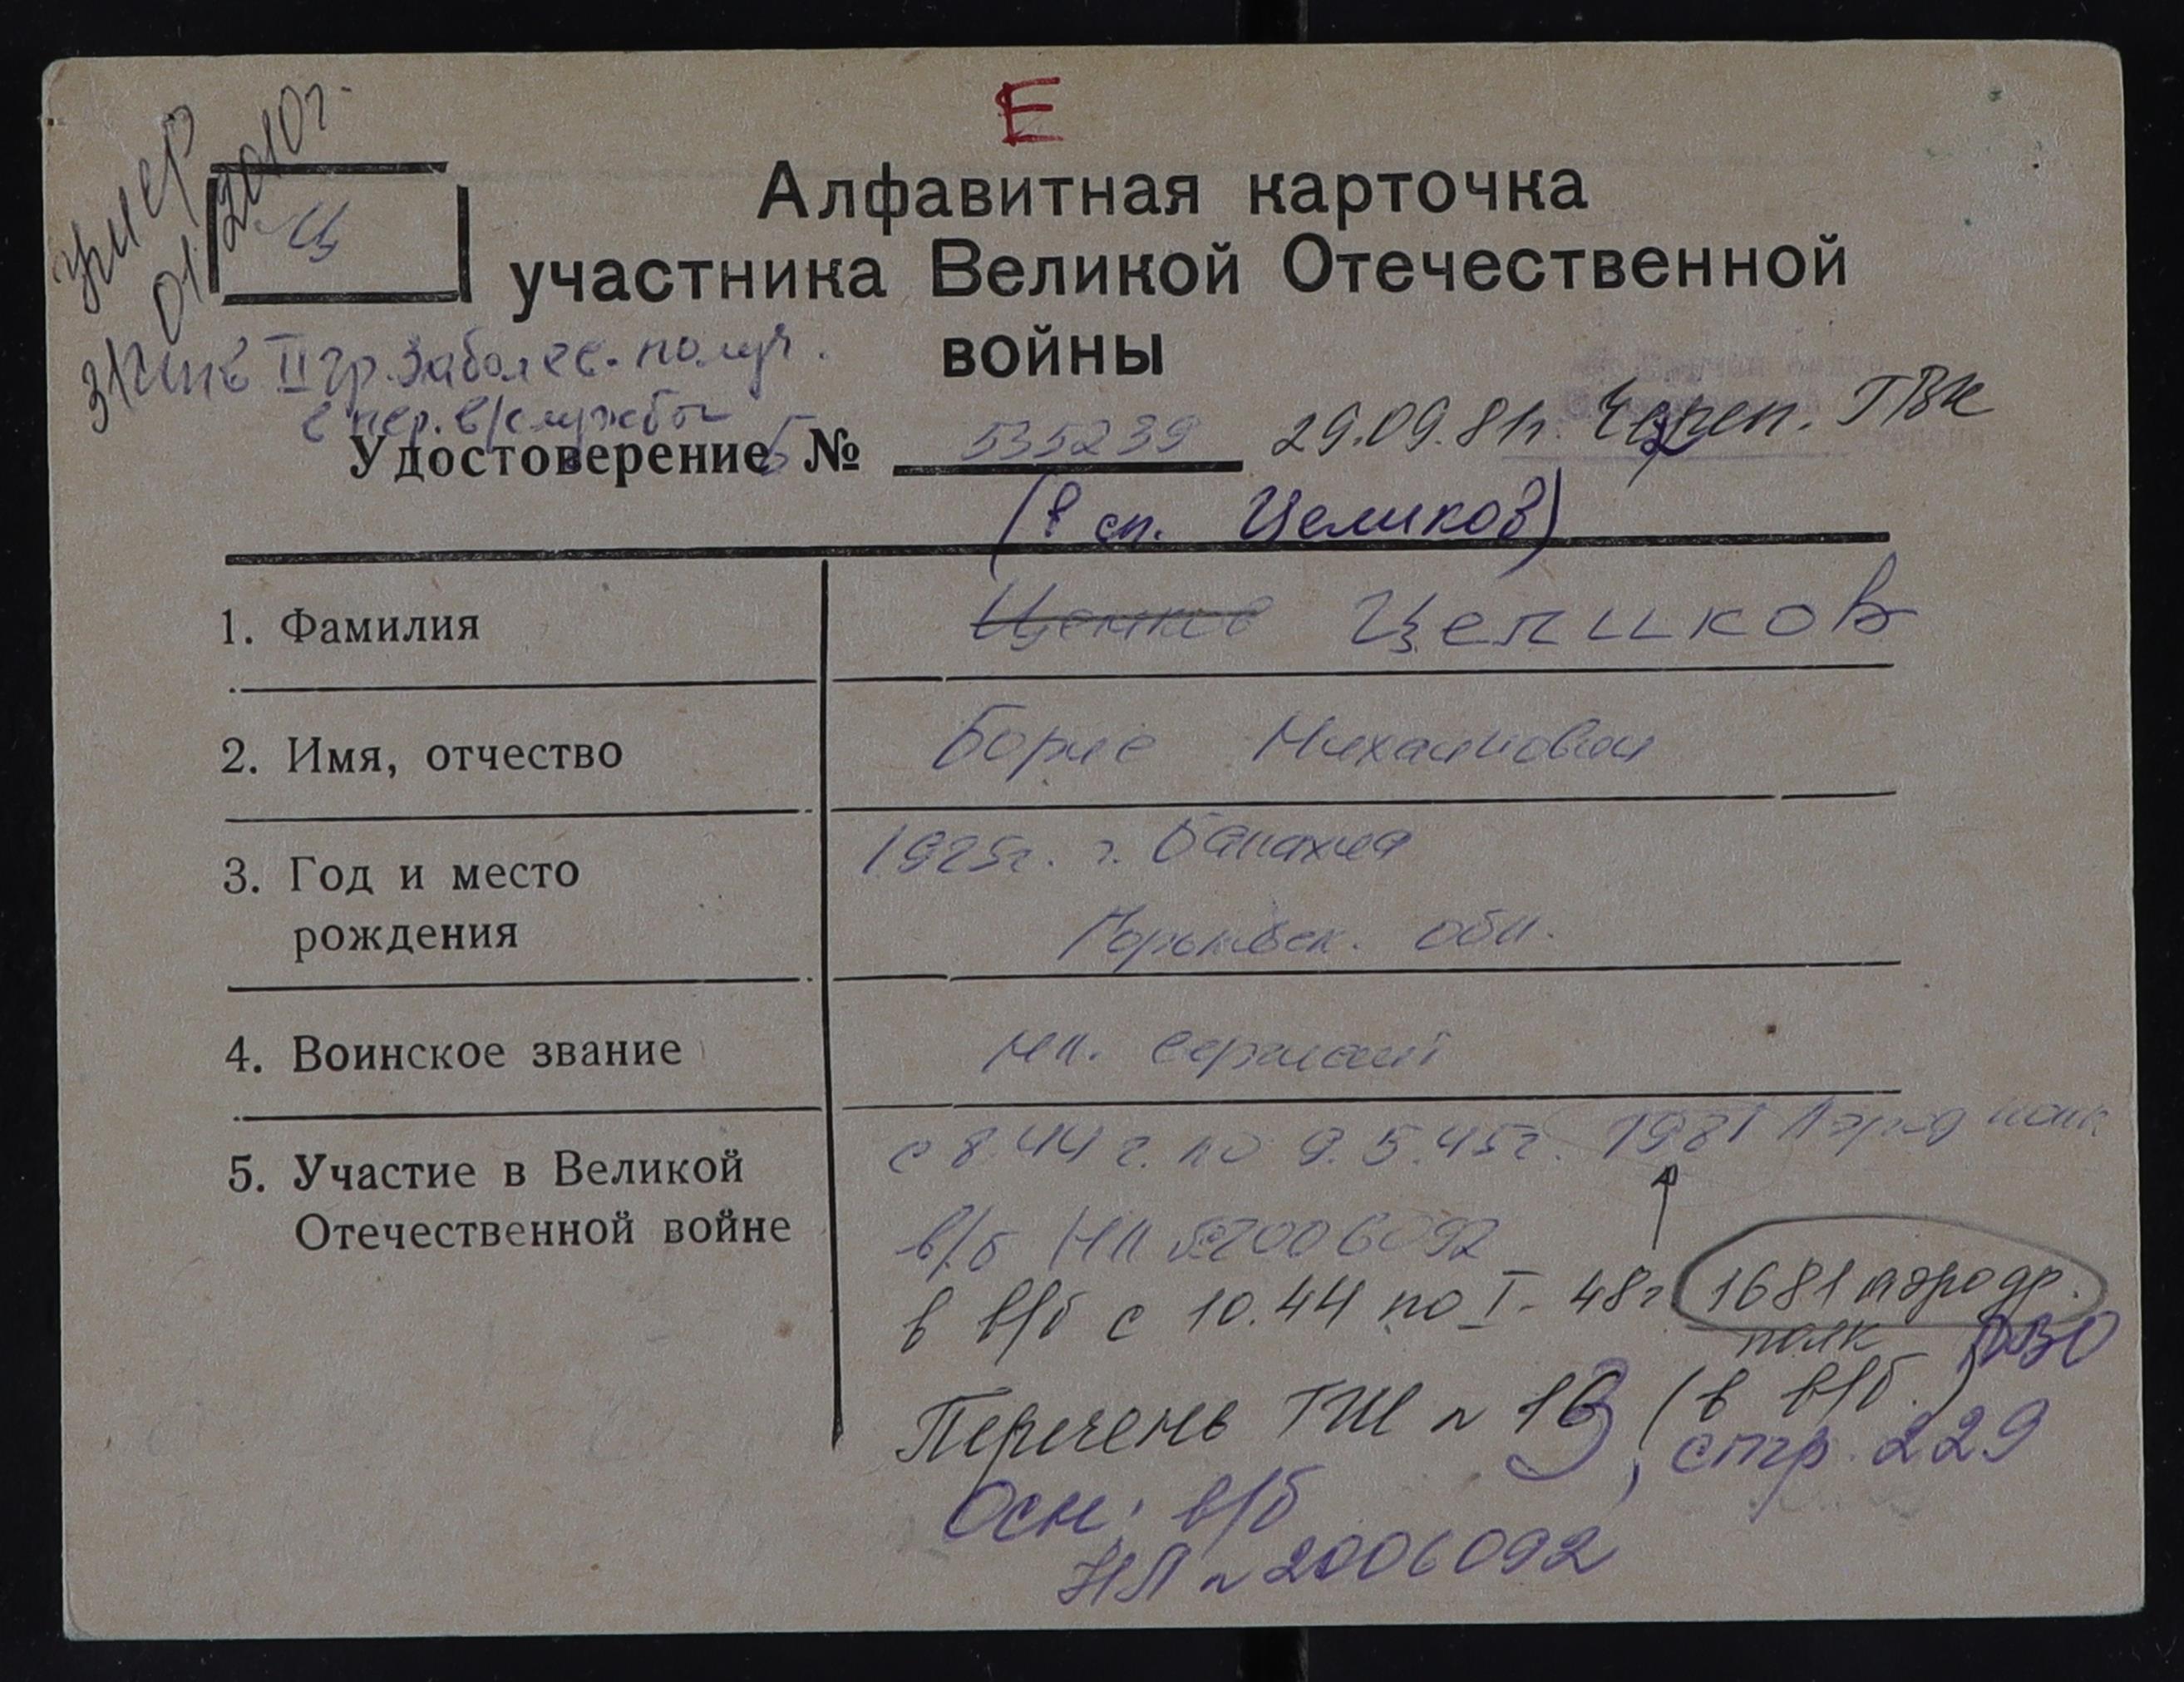 Е
умер
31/01.2010г.
Ц
Алфавитная карточка
участника Великой Отечественной
войны
инв II гр. заболев. получ.
в пер. в/службы
Удостоверение Б № 535239 29.09.81г. Череп. ГВК
(в сп. Целиков)
1. Фамилия Целиков
2. Имя, отчество Борис Михайлович
3. Год и место 1925г. г. Балахна
рождения Горьковск. обл.
4. Воинское звание мл. сержант
5. Участие в Великой с 8.44 г. по 9.5.45г. 1981 Аэрод полк
Отечественной войне в/б НП №2006092
в в/б с 10.44 по I-48г 1681 аэродр.
полк
Перечень ГШ № 13 (в в/б)
, стр. 229
Осн: в/б
НП № 2006092